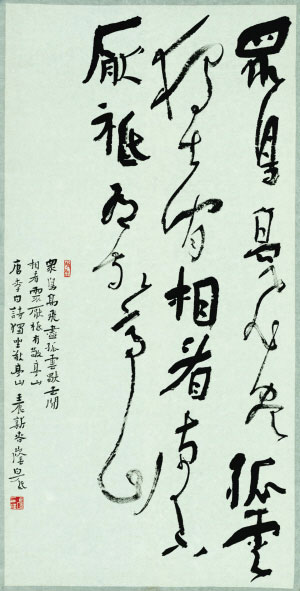 眾鳥高飛盡孤雲
獨去閒相看兩不
厭祗有敬亭山
眾鳥高飛盡孤雲獨去閒
相看兩不厭祗有敬亭山
唐李白詩獨坐敬亭山